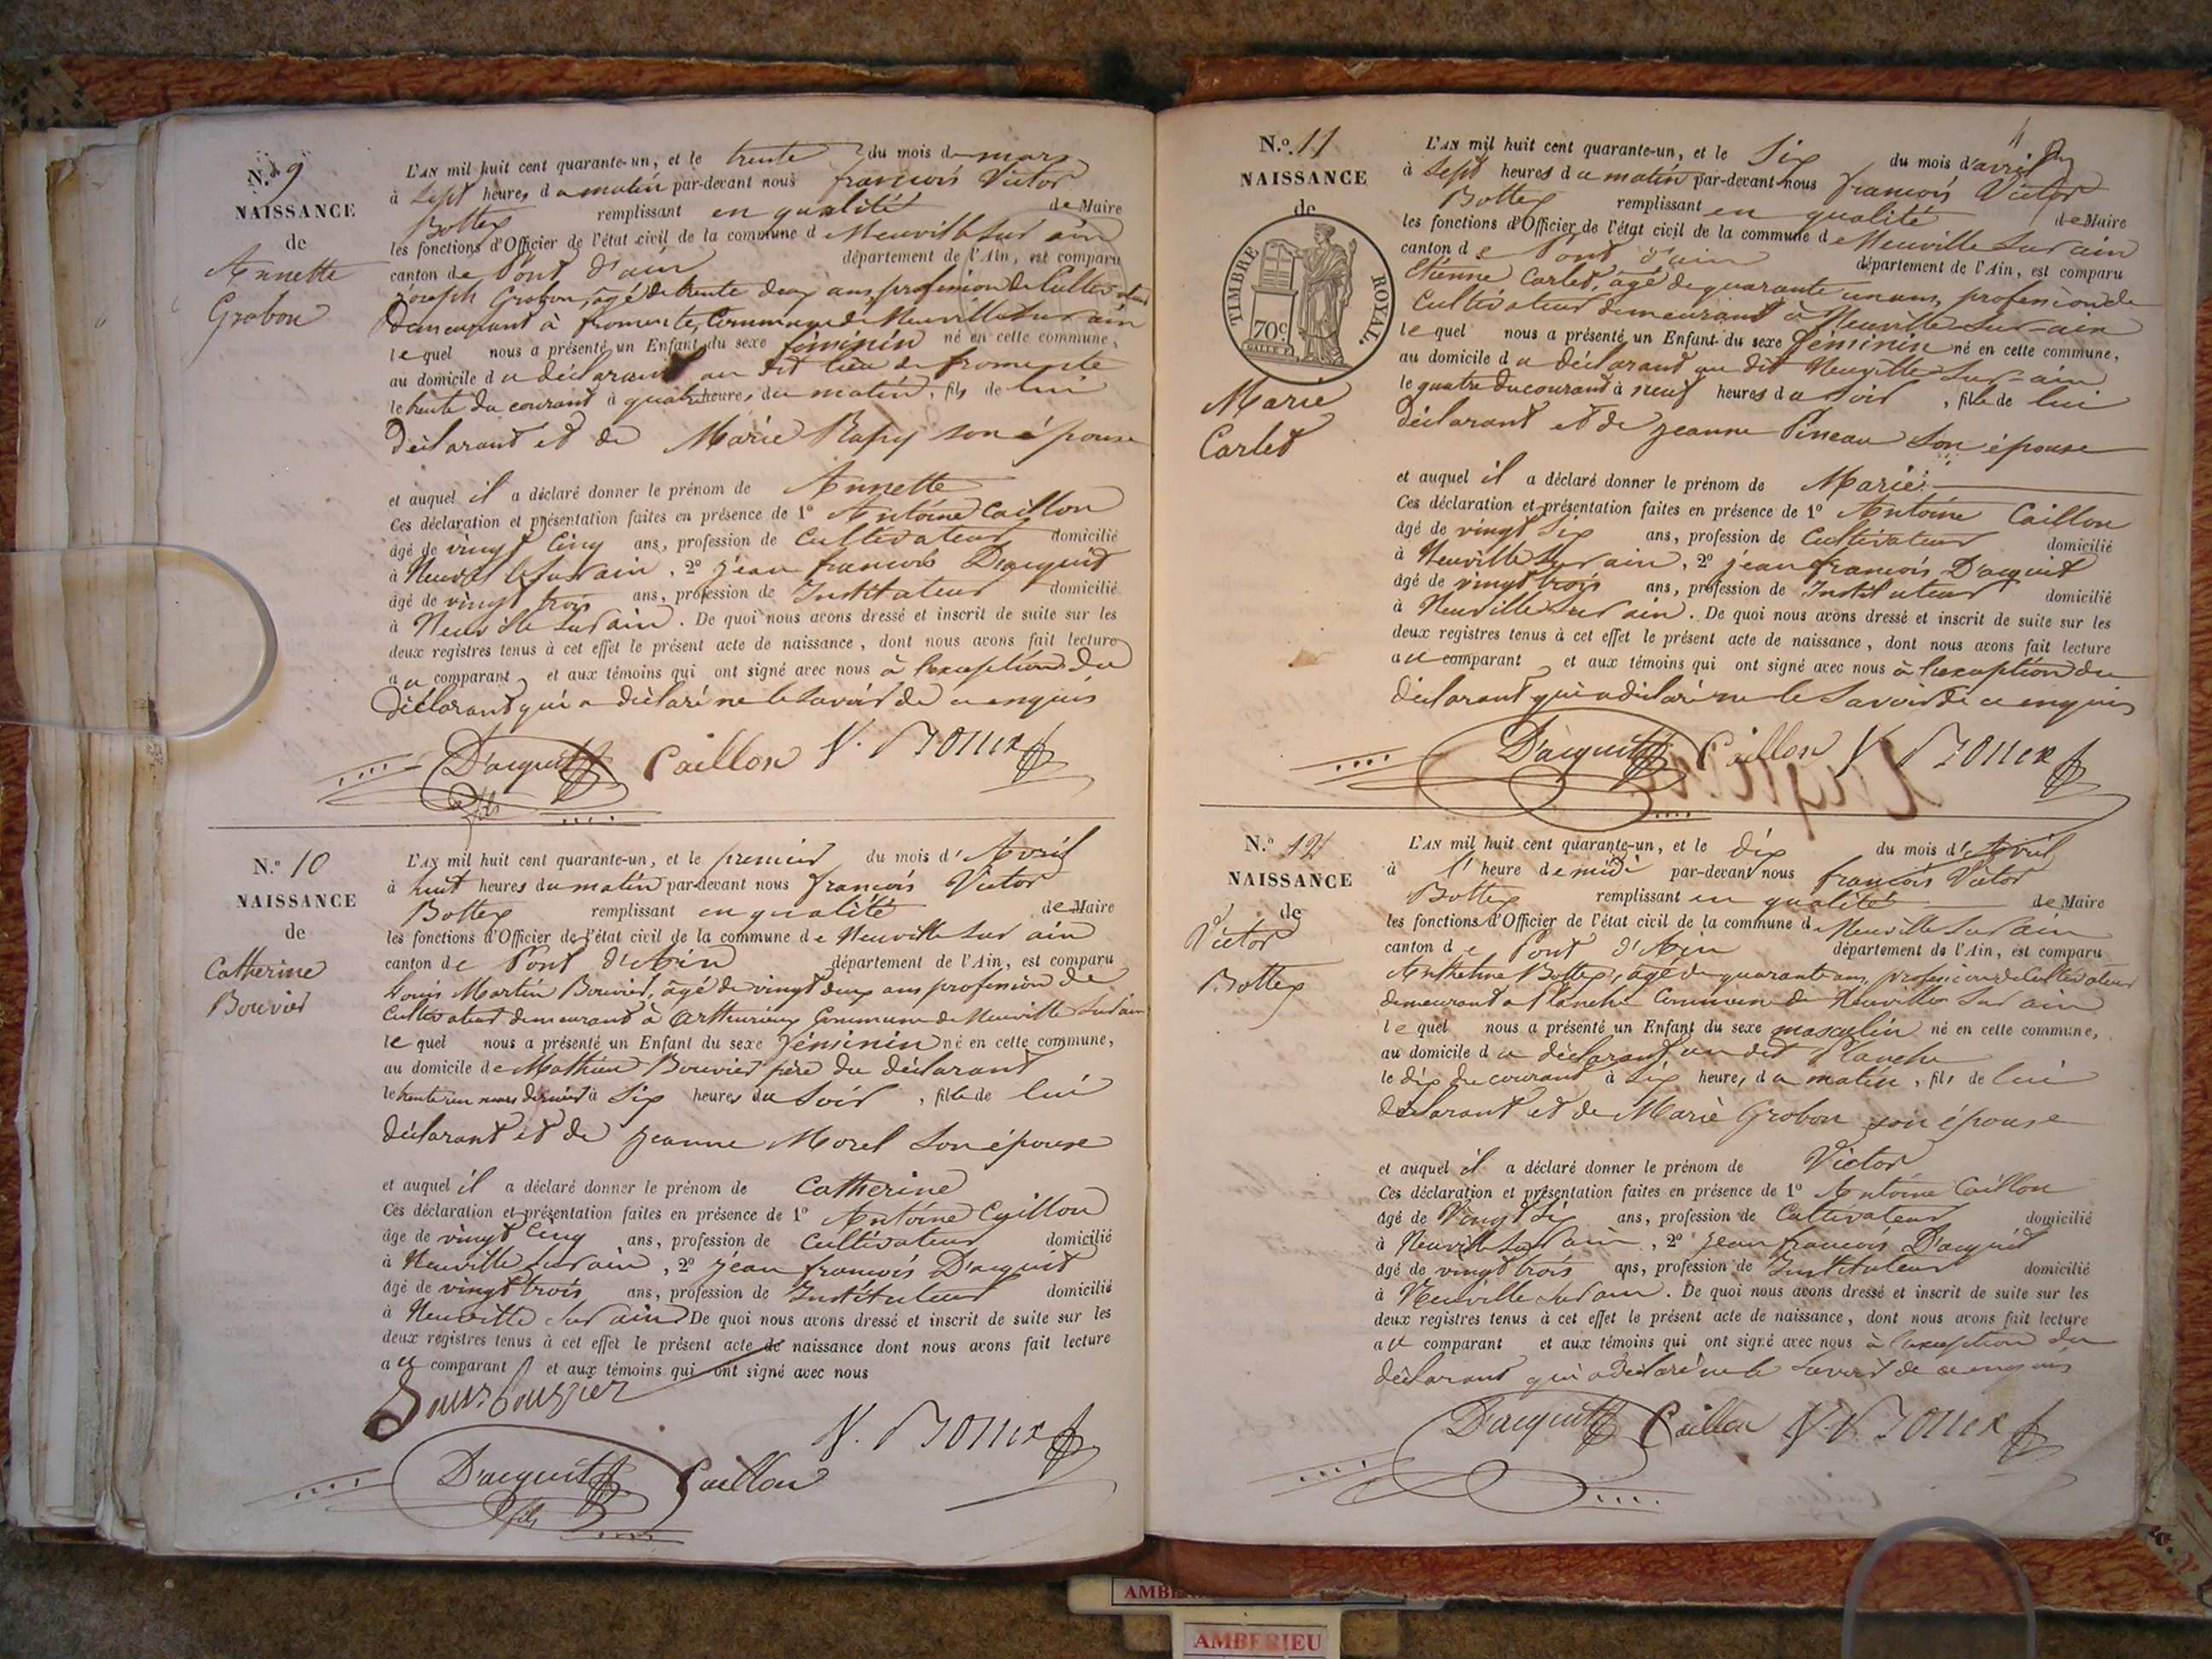 N.º 9
NAISSANCE
de
Annette
Grobon
L'AN mil huit cent quarante-un, et le trente du mois de mars
à sept heures du matin par-devant nous françois Victor
Bottex remplissant en qualité de Maire
les fonctions d'Officier de l'état civil de la commune d Neuville sur ain
canton de Pont d'ain département de l'Ain, est comparu
joseph Grobon, âgé de trente deux ans, profession de Cultivateur
Demeurant à fromente, Commune de Neuville sur ain
lequel nous a présenté un Enfant du sexe féminin né en cette commune,
au domicile du déclarant au dit lieu de fromente
le trente du courant à quatre heures du matin, fils de lui
Déclarant et de Marie Rapy son épouse
et auquel il a déclaré donner le prénom de Annette
Ces déclaration et présentation faites en présence de 1º Antoine Caillon
âgé de vingt Cinq ans, profession de Cultivateur domicilié
à Neuville sur ain, 2º jean françois D'acquit
âgé de vingt trois ans, profession de Instituteur domicilié
à Neuville sur ain. De quoi nous avons dressé et inscrit de suite sur les
deux registres tenus à cet effet le présent acte de naissance, dont nous avons fait lecture
au comparant et aux témoins qui ont signé avec nous à l'exception du
Déclarant qui a déclaré ne le savoir de ce enquis
D'acquit fils Caillon V. Bottex
N.º 10
NAISSANCE
de
Catherine
Bouvier
L'AN mil huit cent quarante-un, et le premier du mois d'Avril
à huit heures du matin par-devant nous françois Victor
Bottex remplissant en qualité de Maire
les fonctions d'Officier de l'état civil de la commune de Neuville sur ain
canton de Pont d'Ain département de l'Ain, est comparu
Louis Martin Bouvier, âgé de vingt deux ans profession de
Cultivateur demeurant à Arthurieux Commune de Neuville sur ain
lequel nous a présenté un Enfant du sexe féminin né en cette commune,
au domicile de Mathieu Bouvier père du déclarant
le trente un mars dernier à Six heures du Soir, fille de lui
déclarant et de jeanne Morel son épouse
et auquel il a déclaré donner le prénom de Catherine
Ces déclaration et présentation faites en présence de 1º Antoine Caillon
âgé de vingt Cinq ans, profession de Cultivateur domicilié
à Neuville sur ain, 2º jean françois D'acquit
âgé de vingt trois ans, profession de Instituteur domicilié
à Neuville sur ain De quoi nous avons dressé et inscrit de suite sur les
deux registres tenus à cet effet le présent acte de naissance dont nous avons fait lecture
au comparant et aux témoins qui ont signé avec nous
V. Bottex
D'acquit fils Caillon
N.º 11
NAISSANCE
de
TIMBRE ROYAL.
70c
Marie
Carlet
L'AN mil huit cent quarante-un, et le Six du mois d'avril
à Sept heures du matin par-devant nous françois Victor
Bottex remplissant en qualité de Maire
les fonctions d'Officier de l'état civil de la commune de Neuville sur ain
canton de Pont d'ain département de l'Ain, est comparu
Etienne Carlet, âgé de quarante un ans, profession de
Cultivateur demeurant à Neuville sur-ain
lequel nous a présenté un Enfant du sexe féminin né en cette commune,
au domicile du déclarant au dit Neuville sur-ain
le quatre du courant à neuf heures du soir, fille de lui
déclarant et de jeanne Pineau son épouse
et auquel il a déclaré donner le prénom de Marie
Ces déclaration et présentation faites en présence de 1º Antoine Caillon
âgé de vingt Six ans, profession de Cultivateur domicilié
à Neuville sur ain, 2º jean françois D'acquit
âgé de vingt trois ans, profession de Instituteur domicilié
à Neuville sur ain. De quoi nous avons dressé et inscrit de suite sur les
deux registres tenus à cet effet le présent acte de naissance, dont nous avons fait lecture
au comparant et aux témoins qui ont signé avec nous à l'exception du
déclarant qui a déclaré ne le savoir de ce enquis
D'acquit Caillon V Bottex
N.º 12
NAISSANCE
de
Victor
Bottex
L'AN mil huit cent quarante-un, et le dix du mois d'Avril
à l'heure de midi par-devant nous françois Victor
Bottex remplissant en qualité de Maire
les fonctions d'Officier de l'état civil de la commune de Neuville sur ain
canton de Pont d'Ain département de l'Ain, est comparu
Anthelme Bottex, âgé de quarante ans, profession de Cultivateur
demeurant à Planche Commune de Neuville sur ain
lequel nous a présenté un Enfant du sexe masculin né en cette commune,
au domicile du déclarant au dit Planche
le dix du courant à Six heures du matin, fils de lui
déclarant et de Marie Grobon son épouse
et auquel il a déclaré donner le prénom de Victor
Ces déclaration et présentation faites en présence de 1º Antoine Caillon
âgé de Vingt Six ans, profession de Cultivateur domicilié
à Neuville sur ain, 2º jean françois D'acquit
âgé de vingt trois ans, profession de Instituteur domicilié
à Neuville sur ain. De quoi nous avons dressé et inscrit de suite sur les
deux registres tenus à cet effet le présent acte de naissance, dont nous avons fait lecture
au comparant et aux témoins qui ont signé avec nous à l'exception du
déclarant qui a déclaré ne le savoir de ce enquis
D'acquit Caillon V. Bottex
AMBERIEU